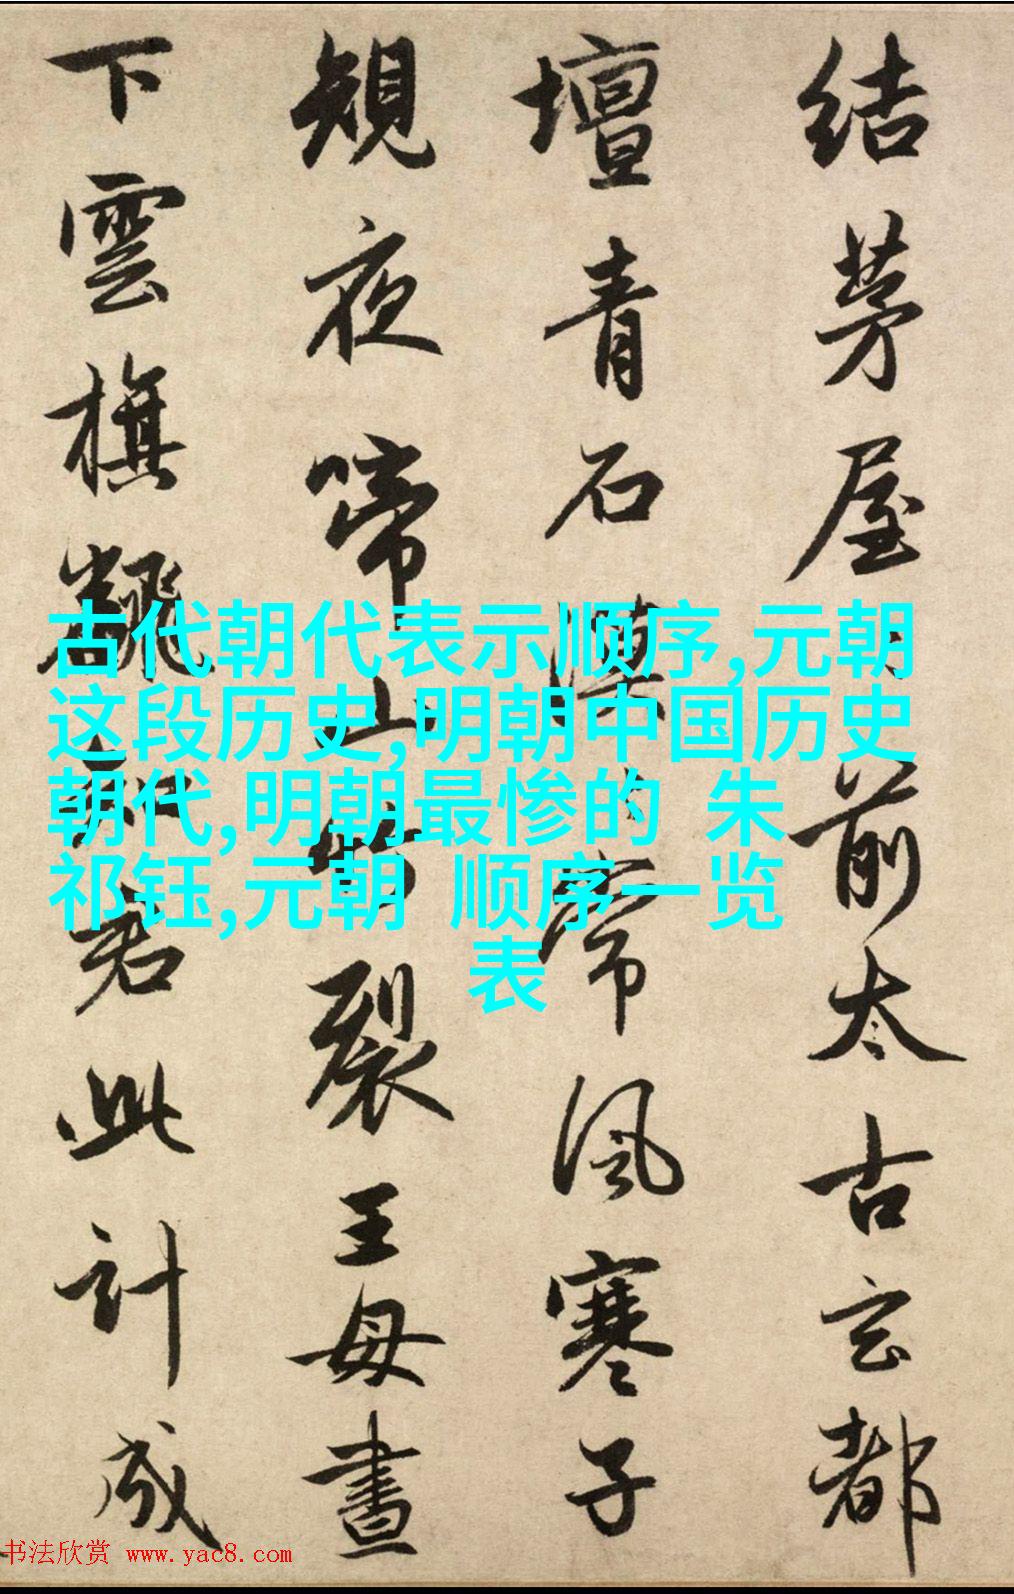 结茅屋前太古玄都
壇青石漠常風寒子
規夜啼山竹裂王母晝
下雲旗飜知君此計成
古代朝代表示顺序,元朝
这段历史,明朝中国历史
朝代,明朝最惨的 朱
祁钰,元朝 顺序一览
表
书法欣赏 www.yac8.com